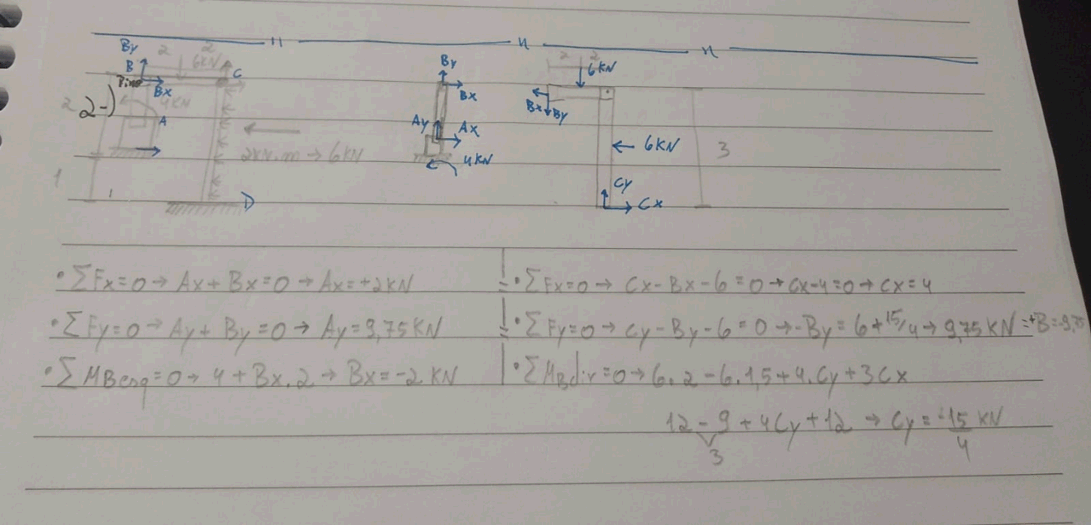 2-)
By
B
Bx
2 2
6KN
C
4KN
A
2KN.m → 6KN
2
1
By
Bx
Ay
Ax
4KN
2 2
6KN
Bx
By
← 6KN
3
Cy
Cx
• ΣFx=0 → Ax + Bx=0 → Ax=+2KN
• ΣFy=0 → Ay + By=0 → Ay=9,75KN
• ΣMBesq=0 → 4 + Bx.2 → Bx=-2KN
• ΣFx=0 → Cx-Bx-6=0 → Cx-4=0 → Cx=4
• ΣFy=0 → Cy-By-6=0 → -By=6+15/4 → 9,75KN
• ΣMBdir=0 → 6.2-6.1,5+4.Cy+3Cx
12-9+4Cy+12 → Cy=-15/4 KN
3